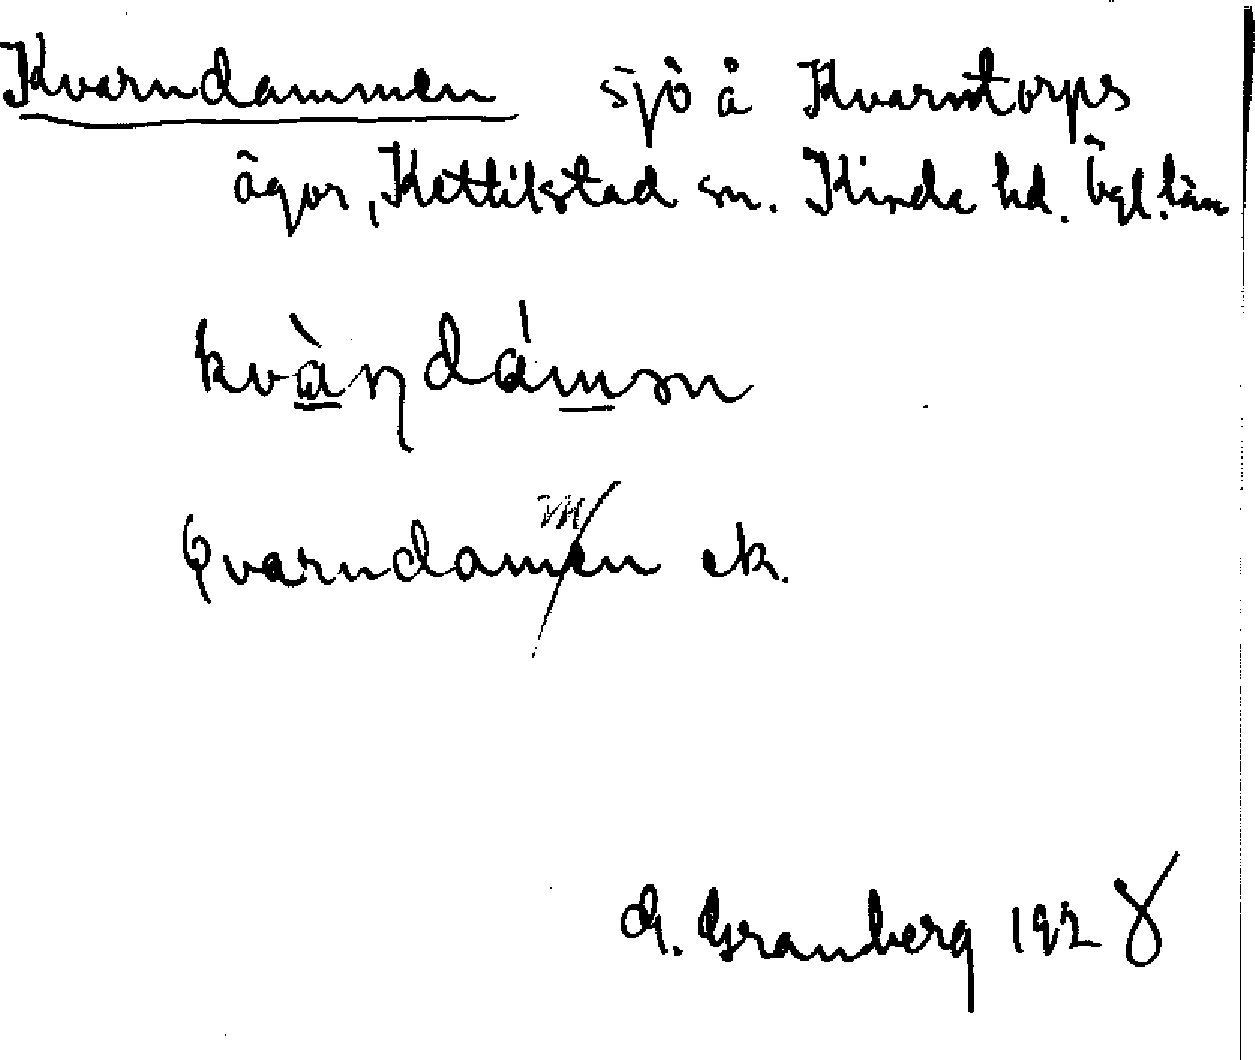 Kvarndammen sjö å Kvarntorps
ägor, Kettilstad sn. Kinda hd. Ögl. län
kvàɳdámən
Qvarndammen ek.
G. Granberg 1928